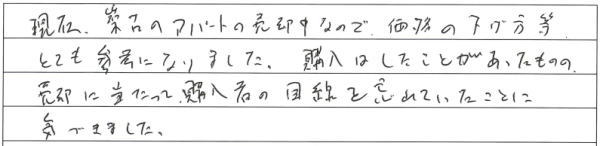 現在、築古のアパートの売却中なので、価格の下げ方等、
とても参考になりました。購入はしたことがあったものの、
売却に当たって、購入者の目線を忘れていたことに
気づきました。